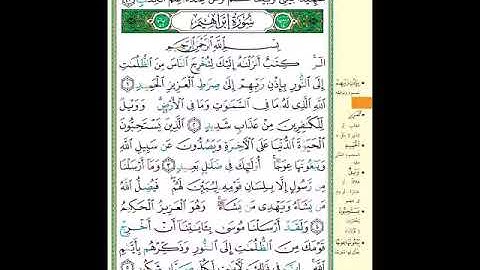 سُورَةُ إِبْرَاهِيمَ
بِسْمِ اللَّهِ الرَّحْمَٰنِ الرَّحِيمِ
الٓر ۚ كِتَٰبٌ أَنزَلْنَٰهُ إِلَيْكَ لِتُخْرِجَ النَّاسَ مِنَ الظُّلُمَٰتِ
إِلَى النُّورِ بِإِذْنِ رَبِّهِمْ إِلَىٰ صِرَٰطِ الْعَزِيزِ الْحَمِيدِ ١
اللَّهِ الَّذِى لَهُ مَا فِى السَّمَٰوَٰتِ وَمَا فِى الْأَرْضِ ۗ وَوَيْلٌ
لِّلْكَٰفِرِينَ مِنْ عَذَابٍ شَدِيدٍ ٢ الَّذِينَ يَسْتَحِبُّونَ
الْحَيَوٰةَ الدُّنْيَا عَلَى الْءَاخِرَةِ وَيَصُدُّونَ عَن سَبِيلِ اللَّهِ
وَيَبْغُونَهَا عِوَجًا ۚ أُو۟لَٰٓئِكَ فِى ضَلَٰلٍۭ بَعِيدٍ ٣ وَمَا أَرْسَلْنَا
مِن رَّسُولٍ إِلَّا بِلِسَانِ قَوْمِهِ لِيُبَيِّنَ لَهُمْ ۖ فَيُضِلُّ اللَّهُ
مَن يَشَاءُ وَيَهْدِى مَن يَشَاءُ ۚ وَهُوَ الْعَزِيزُ الْحَكِيمُ
٤ وَلَقَدْ أَرْسَلْنَا مُوسَىٰ بِـَٔايَٰتِنَا أَنْ أَخْرِجْ
قَوْمَكَ مِنَ الظُّلُمَٰتِ إِلَى النُّورِ وَذَكِّرْهُم بِأَيَّىٰمِ
اللَّهِ ۚ إِنَّ فِى ذَٰلِكَ لَءَايَٰتٍ لِّكُلِّ صَبَّارٍ شَكُورٍ ٥